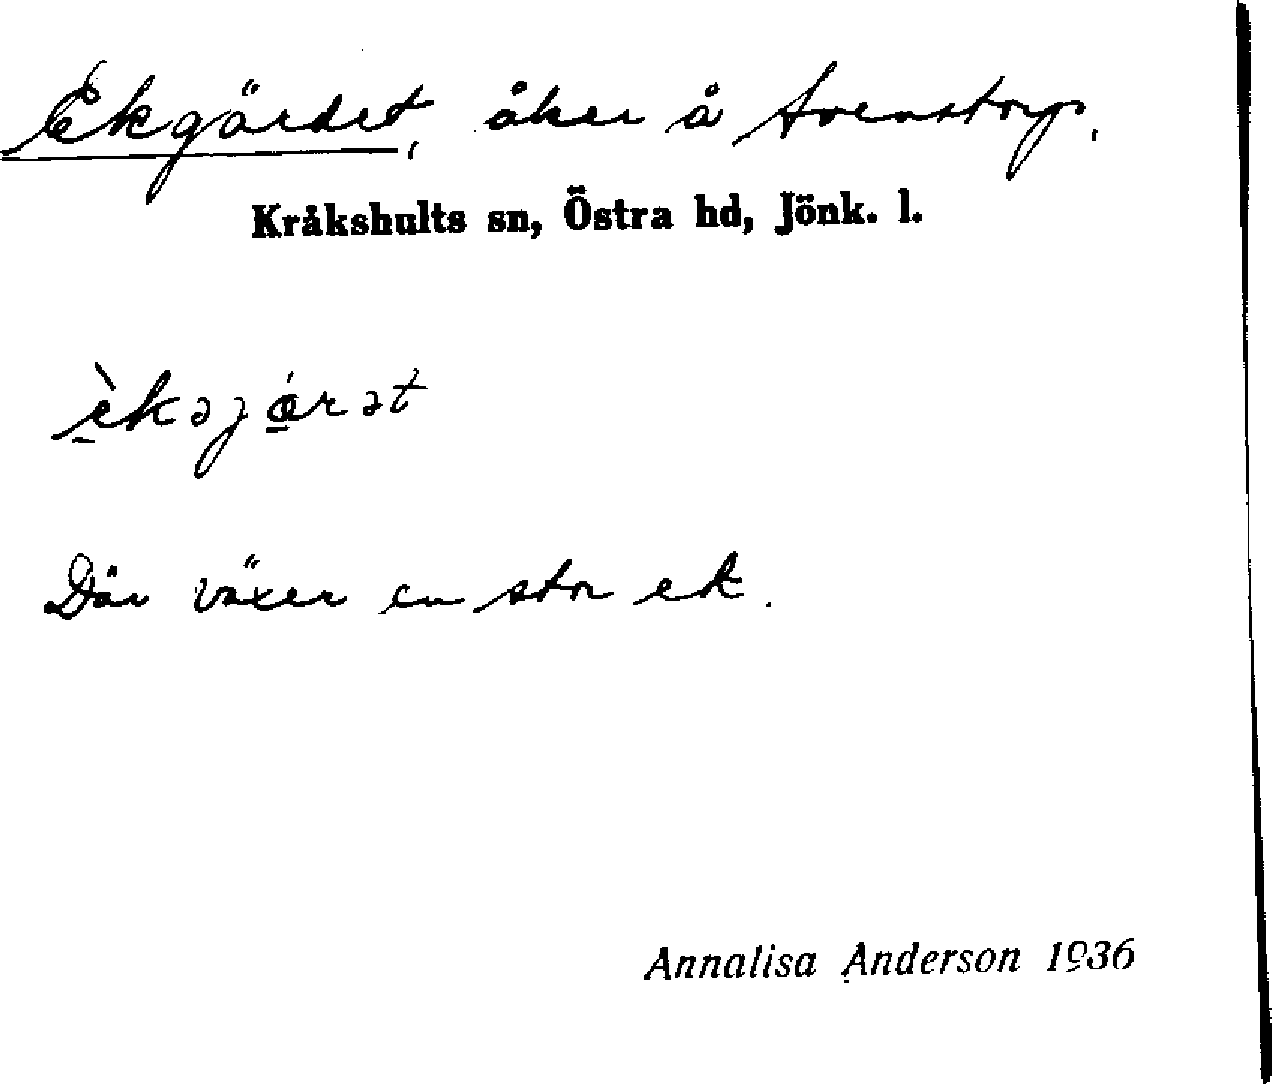 Ekgärdet, åker å Svenstorp,
Kråkshults sn, Östra hd, Jönk. l.
è̠kəjǽ̠rət
Där växer en stor ek.
Annalisa Anderson 1936